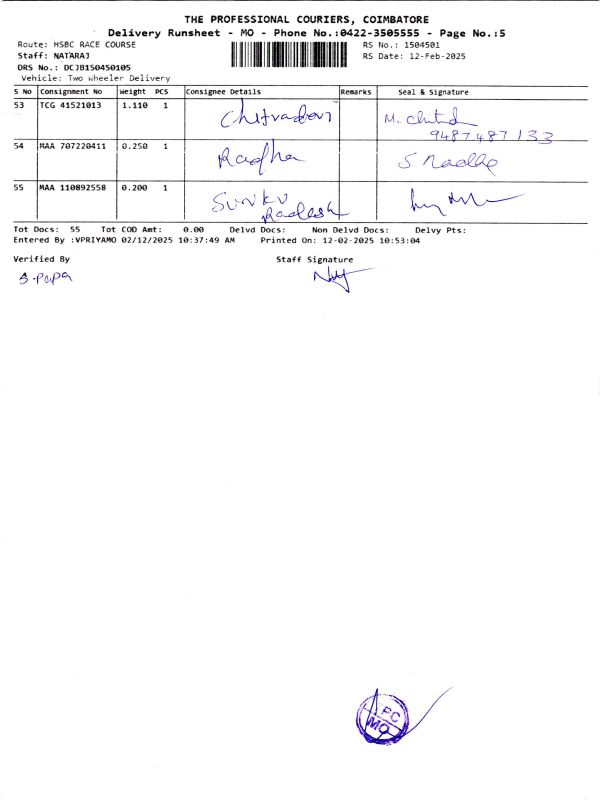 THE PROFESSIONAL COURIERS, COIMBATORE
Delivery Runsheet - MO - Phone No.:0422-3505555 - Page No.:5
Route: HSBC RACE COURSE RS No.: 1504501
Staff: NATARAJ RS Date: 12-Feb-2025
DRS No.: DCJB150450105
Vehicle: Two Wheeler Delivery
S No Consignment No Weight PCS Consignee Details Remarks Seal & Signature
53 TCG 41521013 1.110 1 Chitradevi M. Chitra
9487487133
54 MAA 707220411 0.250 1 Radha S Radha
55 MAA 110892558 0.200 1
Tot Docs: 55 Tot COD Amt: 0.00 Delvd Docs: Non Delvd Docs: Delvy Pts:
Entered By :VPRIYAMO 02/12/2025 10:37:49 AM Printed On: 12-02-2025 10:53:04
Verified By Staff Signature
S. Papa
PC
MO